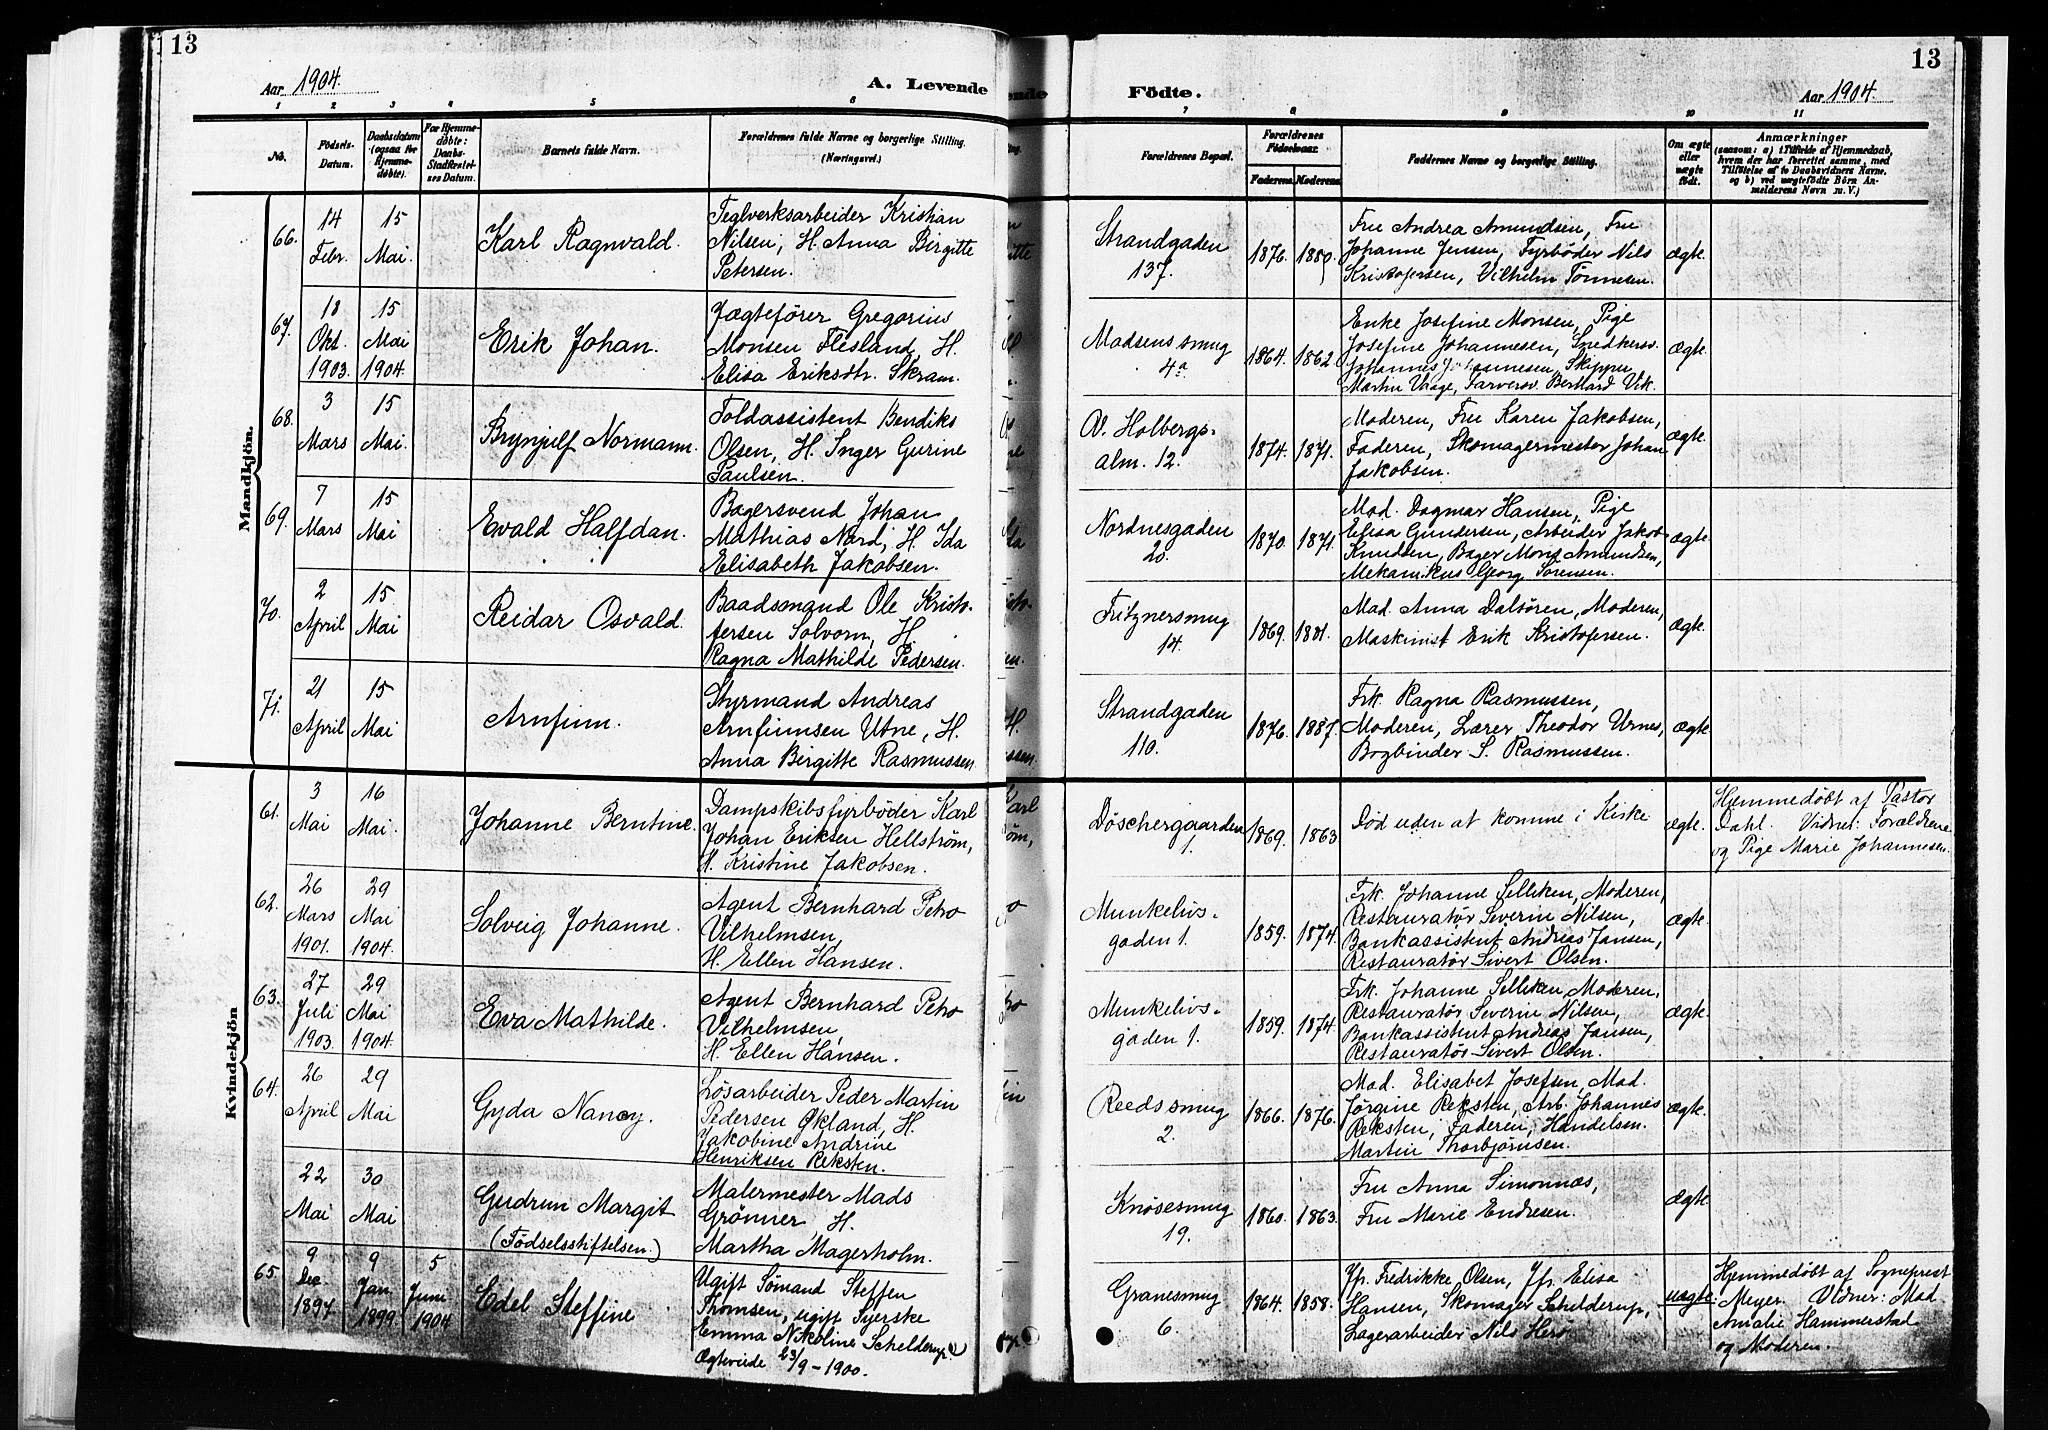 13
Aar 1904.
A. Levende
1 2 3 4 5 6
No.
Födsels-Datum.
Daabsdatum (ogsaa for Hjemmedöbte).
For Hjemmedöbte: Daabs-Stadfæstelses Datum.
Barnets fulde Navn.
Forældrenes fulde Navne og borgerlige Stilling.
(Næringsvei.)
Mandkjön.
66. 14 Febr. 15 Mai. Karl Ragnvald.
Teglverksarbeider Kristian
Nilsen, H. Anna Birgitte
Petersen.
67. 18 Okt. 1903. 15 Mai 1904. Erik Johan.
Jægtefører Gregorius
Monsen Flesland, H.
Elisa Eriksdtr. Skram.
68. 3 Mars 15 Mai. Brynjulf Normann.
Toldassistent Bendiks
Olsen, H. Inger Gurine
Paulsen.
69. 7 Mars 15 Mai Evald Halfdan.
Bagersvend Johan
Mathias Nord, H. Ida
Elisabeth Jakobsen.
70. 2 April 15 Mai Reidar Osvald.
Baadsmand Ole Kristo-
fersen Solvorn, H.
Ragna Mathilde Pedersen.
71. 21 April 15 Mai Arnfinn.
Styrmand Andreas
Arnfinnsen Utne, H.
Anna Birgitte Rasmussen.
Kvindekjön
61. 3 Mai 16 Mai. Johanne Berntine.
Dampskibsfyrbøder Karl
Johan Eriksen Hellstrøm,
H. Kristine Jakobsen.
62. 26 Mars 1901. 29 Mai 1904. Solveig Johanne.
Agent Bernhard Petro
Vilhelmsen,
H. Ellen Hansen.
63. 27 Juli 1903. 29 Mai 1904. Eva Mathilde.
Agent Bernhard Petro
Vilhelmsen,
H. Ellen Hansen.
64. 26 April 29 Mai Gyda Nancy.
Løsarbeider Peder Martin
Pedersen Økland, H.
Jakobine Andrine
Henriksen Reksten.
22 Mai 30 Mai Gudrun Margit
(Fødselsstiftelsen.)
Malermester Mads
Grønner, H.
Martha Magerholm.
65. 9 Dec. 1897. 9 Jan. 1899 5 Juni 1904 Edel Steffine
Ugift Sømand Steffen
Thomsen, ugift Syerske
Emma Nikoline Schelderup.
Ægteviede 23/9 - 1900.
13
Födte.
Aar 1904.
7 8 9 10 11
Forældrenes Bopæl.
Forældrenes Födselsaar.
Faderens. Moderens.
Faddernes Navne og borgerlige Stilling.
Om ægte eller uægte födt.
Anmærkninger
(saasom: a) i Tilfælde af Hjemmedaab,
hvem der har forrettet samme, med
Tilföielse af to Daabsvidners Navne,
og b) ved uægtefödte Börn An-
melderens Navn m. V.)
Strandgaden 137. 1876. 1880.
Fru Andrea Amundsen, Fru
Johanne Jensen, Fyrbøder Nils
Kristofersen, Vilhelm Tønnesen.
ægte.
Madsens smug 4a. 1864. 1862
Enke Josefine Monsen, Pige
Josefine Johannesen, Snedkersv.
Johannes Johannesen, Skipper
Martin Vaage, Farversv. Bernhard Vik.
ægte.
Ol. Holbergs-
alm. 12. 1874. 1871.
Moderen, Fru Karen Jakobsen,
Faderen, Skomagermester Johan
Jakobsen.
ægte.
Nordnesgaden 20. 1870. 1871.
Mad. Dagmar Hansen, Pige
Elisa Gundersen, Arbeider Jakob
Knudsen, Bager Mons Amundsen,
Mekanikus Georg Sørensen.
ægte.
Fritznersmug 14. 1869. 1881.
Mad. Anna Dalsøren, Moderen,
Maskinist Erik Kristofersen.
ægte.
Strandgaden 110. 1876. 1887.
Frk. Ragna Rasmussen,
Moderen, Lærer Theodor Urnes,
Bogbinder S. Rasmussen.
ægte.
Døschergaarden 1. 1869. 1863
Død uden at komme i Kirke
ægte.
Hjemmedøbt af Pastor
Dahl. Vidner: Forældrene
og Pige Marie Johannesen.
Munkelivs-
gaden 1. 1859. 1874.
Frk. Johanne Selliken, Moderen,
Restauratør Severin Nilsen,
Bankassistent Andreas Jansen,
Restauratør Sivert Olsen.
ægte.
Munkelivs-
gaden 1. 1859. 1874.
Frk. Johanne Selliken, Moderen,
Restauratør Severin Nilsen,
Bankassistent Andreas Jansen,
Restauratør Sivert Olsen.
ægte.
Reedssmug 2. 1866. 1876.
Mad. Elisabet Josefsen, Mad.
Jørgine Reksten, Arb. Johannes
Reksten, Faderen, Handelsm.
Martin Thorbjørnsen.
ægte.
Knøsesmug 19. 1860. 1863.
Fru Anna Simonnæs,
Fru Marie Endresen.
ægte.
Granesmug 6. 1864. 1858.
Jfr. Fredrikke Olsen, Jfr. Elisa
Hansen, Skomager Schelderup,
Lagerarbeider Nils Herø
uægte.
Hjemmedøbt af Sogneprest
Meyer. Vidner: Mad.
Amalie Hammerstad
og Moderen.